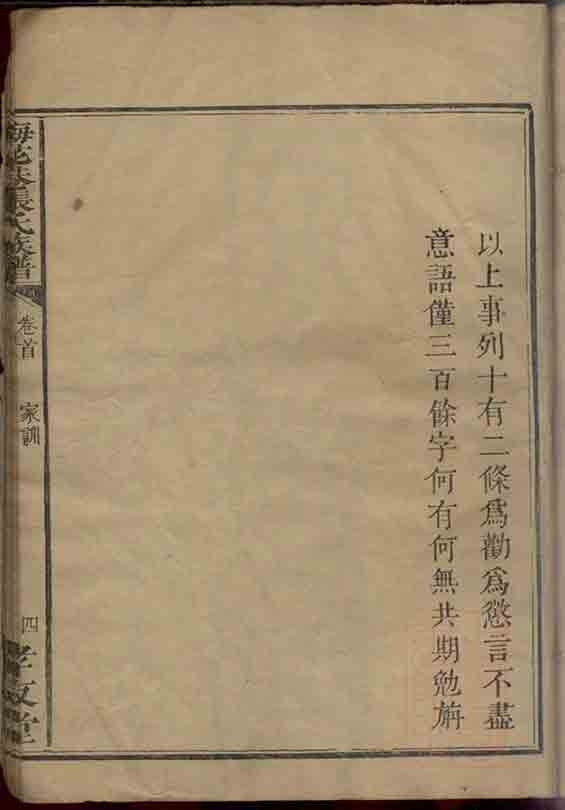 以上事列十有二條爲勸爲懲言不盡
意語僅三百餘字何有何無共期勉旃
梅花巷張氏族譜
卷首
家訓
四
孝友堂